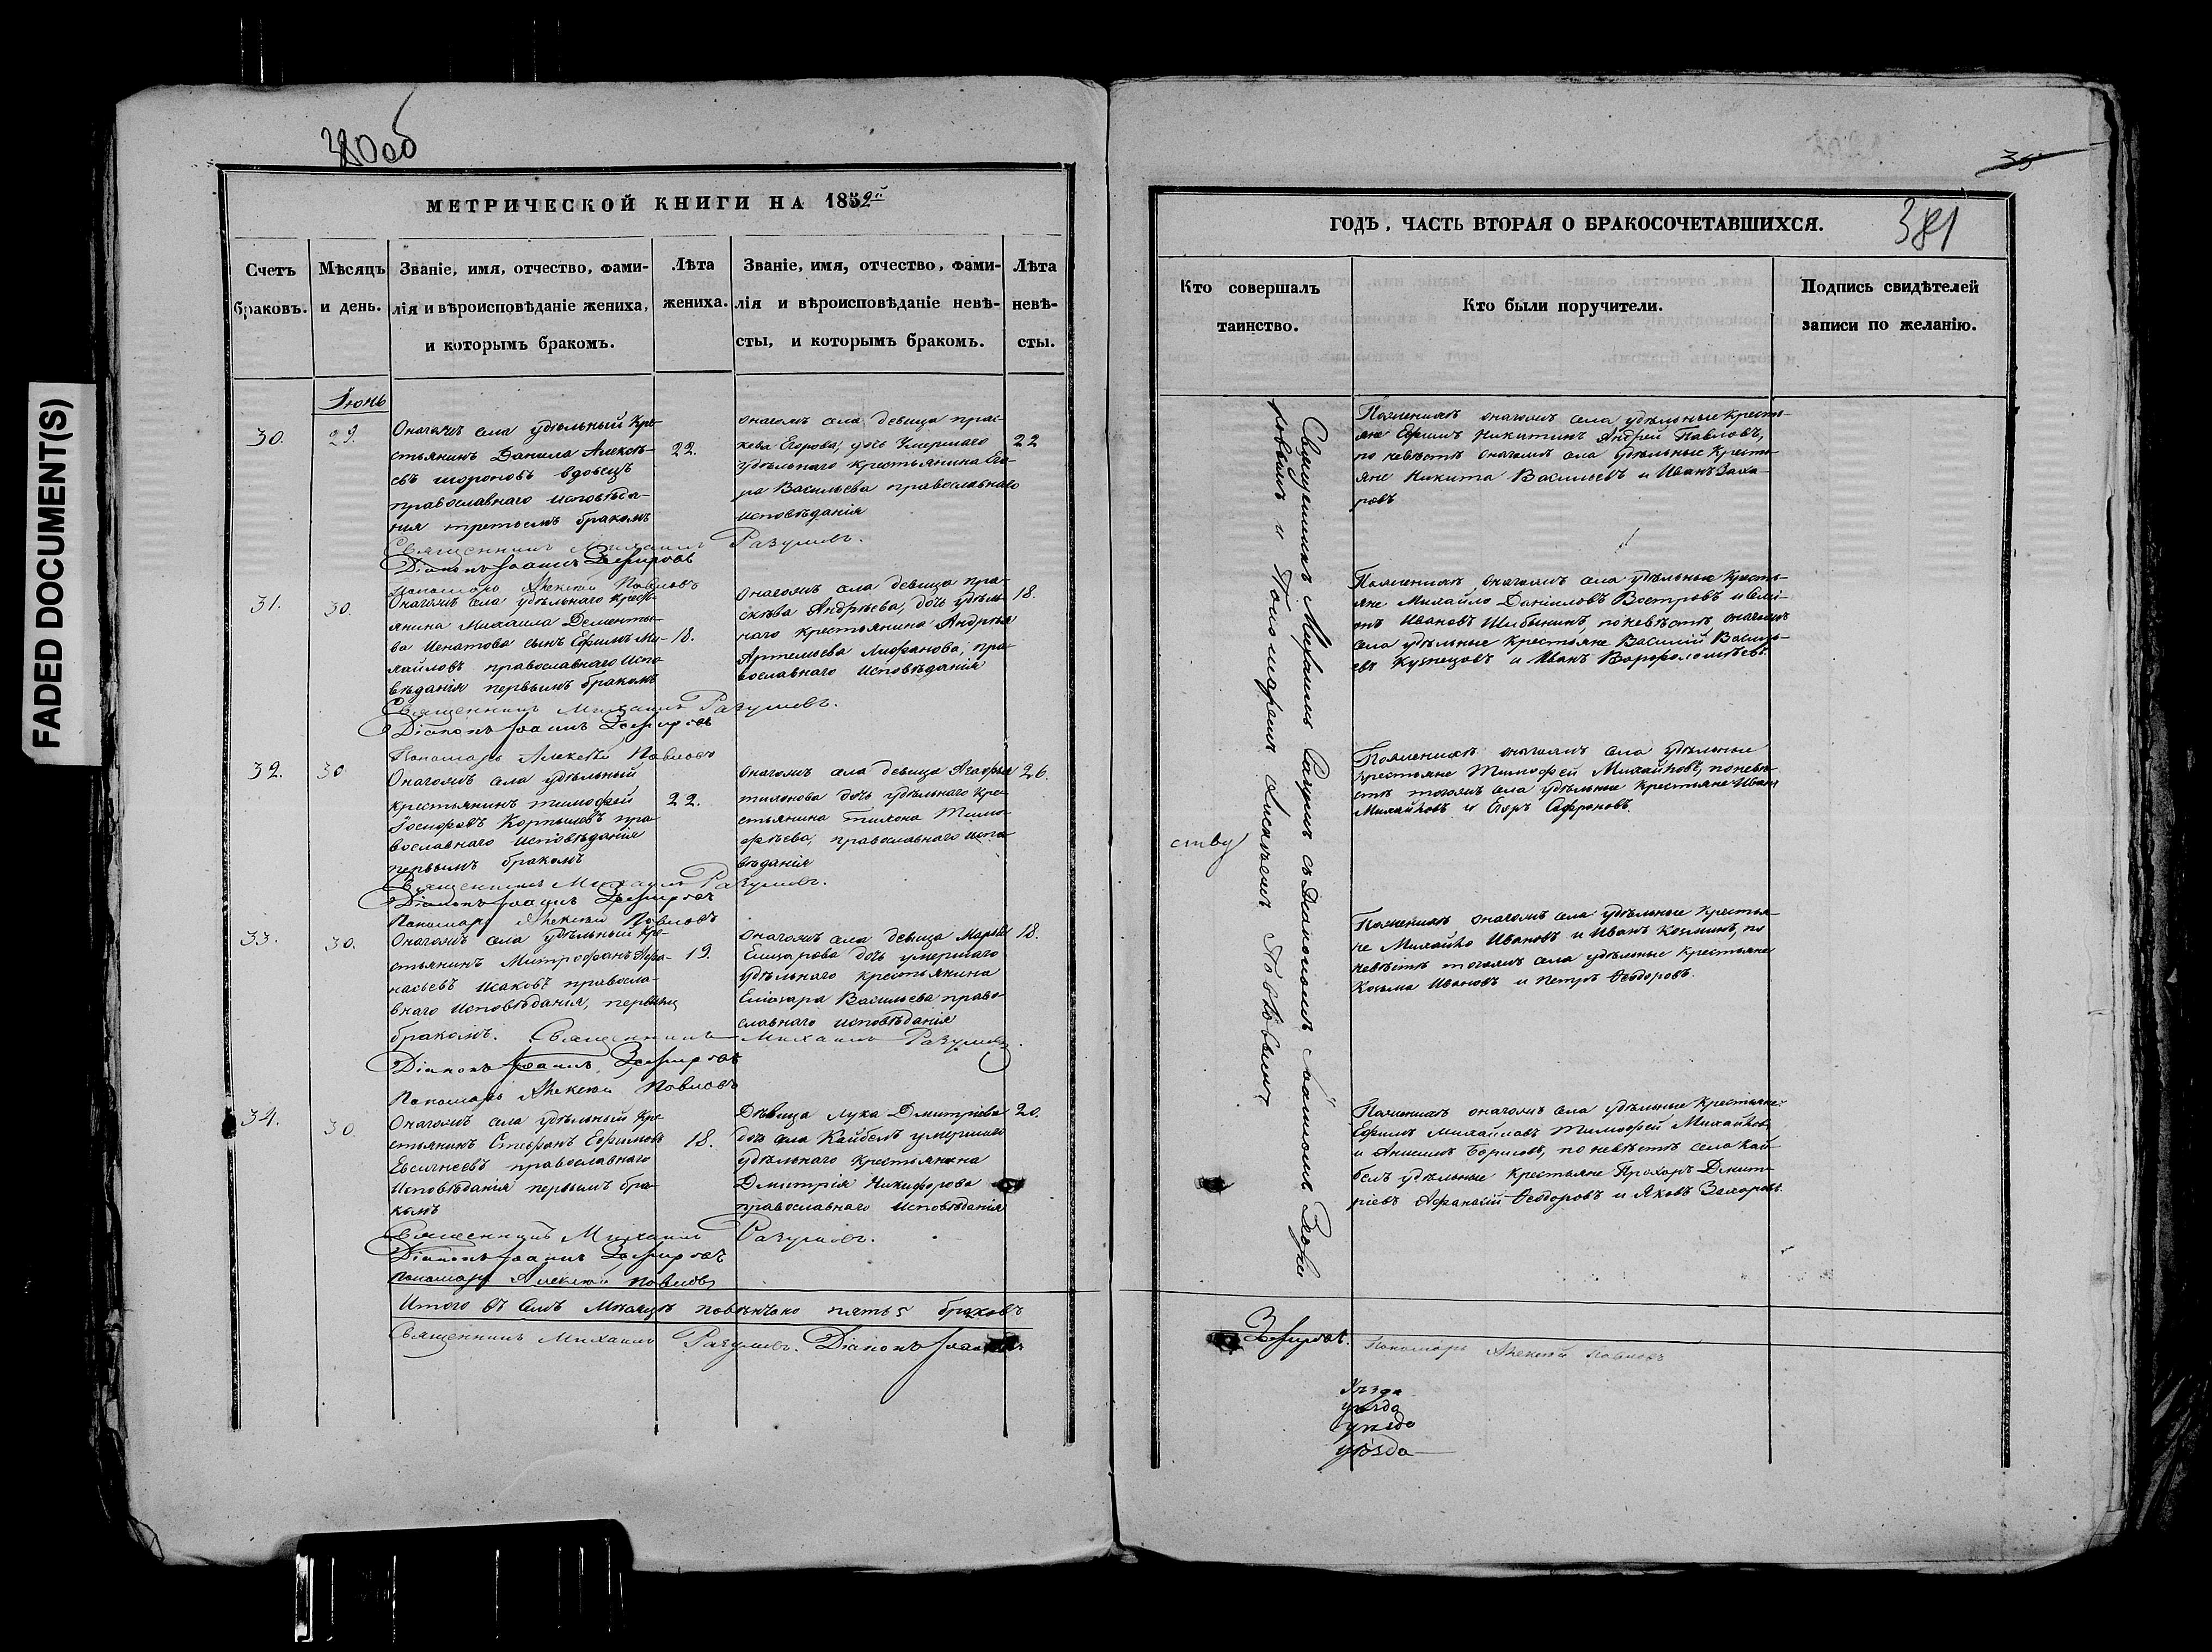 FADED DOCUMENT(S)
380об
МЕТРИЧЕСКОЙ КНИГИ НА 1852й
Счетъ браковъ.
Мѣсяцъ и день.
Званіе, имя, отчество, фами-
лія и вѣроисповѣданіе жениха,
и которымъ бракомъ.
Лѣта
жениха.
Званіе, имя, отчество, фами-
лія и вѣроисповѣданіе невѣ-
сты, и которымъ бракомъ.
Лѣта
невѣ-
сты.
Іюнь
30.
29.
Онагожъ села удѣльный кре-
стьянинъ Данила Алексѣ-
евъ вдовецъ
православнаго исповѣда-
нія третьимъ бракомъ
22.
Онагожъ села девица прас-
кева Егорова, дочь умершаго
удѣльнаго крестьянина Его-
ра Васильева православнаго
исповѣданія
22
Священникъ Михаилъ Разумовъ.
Діаконъ Іоаннъ Зефировъ
Пономарь Алексѣй Павловъ
31.
30.
Онагожъ села удѣльнаго кресть-
янина Михаила Дементье-
ва Игнатова сынъ Ефимъ Ми-
хайловъ православнаго испо-
вѣданія первымъ бракомъ
18.
Онагожъ села девица пра-
сковья Андрѣева, дочь удѣль-
наго крестьянина Андрѣя
Артемьева православнаго исповѣданія
18.
Священникъ Михаилъ Разумовъ.
Діаконъ Іоаннъ Зефировъ
Пономарь Алексѣй Павловъ
32.
30
Онагожъ села удѣльный
крестьянинъ тимофей
Іосифовъ пра-
вославнаго исповѣданія
первымъ бракомъ
22.
Онагожъ села девица Агафья
тихонова дочь удѣльнаго кре-
стьянина тихона Тимо-
фѣева, православнаго испо-
вѣданія
26.
Священникъ Михаилъ Разумовъ.
Діаконъ Іоаннъ Зефировъ
Пономарь Алексѣй Павловъ
33.
30.
Онагожъ села удѣльный кре-
стьянинъ Митрофанъ Афа-
насьевъ Исаковъ правосла-
внаго исповѣданія, первымъ
бракомъ.
19.
Онагожъ села девица Марья
Елизарова дочь умершаго
удѣльнаго крестьянина
Елизара Васильева право-
славнаго исповѣданія
18.
Священникъ Михаилъ Разумовъ.
Діаконъ Іоаннъ Зефировъ
Пономарь Алексѣй Павловъ
34.
30.
Онагожъ села удѣльный кре-
стьянинъ Стефанъ Ефимовъ
Евсигнеевъ православнаго
исповѣданія первымъ бра-
комъ
18.
Дѣвица Лука Дмитріева
дочь села Кайбелъ умершаго
удѣльнаго крестьянина
Дмитрія Никифорова
православнаго исповѣданія
20.
Священникъ Михаилъ Разумовъ.
Діаконъ Іоаннъ Зефировъ
Пономарь Алексѣй Павловъ
Итого въ семъ мѣсяцѣ повѣнчано пять 5 браковъ
Священникъ Михаилъ Разумовъ. Діаконъ Іоаннъ
35
381
ГОДЪ, ЧАСТЬ ВТОРАЯ О БРАКОСОЧЕТАВШИХСЯ.
Кто совершалъ
таинство.
Кто были поручители.
Подпись свидѣтелей
записи по желанію.
Священникъ Михаилъ Разумовъ съ Діакономъ Іоанномъ Зефи
ровымъ и Пономаремъ Алексѣемъ Павловымъ
ству
По женихѣ онагожъ села удѣльные кресть-
яне Ефимъ Никитинъ Андрей Павловъ,
по невѣстѣ онагожъ села удѣльные кресть-
яне Никита Васильевъ и Иванъ Заха-
ровъ
По женихѣ онагожъ села удѣльные кресть-
яне Михайло Даниловъ Востровъ и
Ивановъ Шибынинъ, по невѣстѣ онагожъ
села удѣльные крестьяне Василій Василь-
евъ Кузнецовъ и Иванъ Ворфоломѣевъ.
По женихѣ онагожъ села удѣльные
крестьяне Тимофей Михайловъ, по невѣ-
стѣ тогожъ села удѣльные крестьяне Иванъ
Михайловъ и Егоръ Сафроновъ.
По женихѣ онагожъ села удѣльные крестья-
не Михайло Ивановъ и Иванъ Козминъ, по
невѣстѣ тогожъ села удѣльные крестьяне
Козьма Ивановъ и Петръ Ѳеодоровъ.
По женихѣ онагожъ села удѣльные крестьяне
Ефимъ Михайловъ Тимофей Михайловъ
и Борисовъ, по невѣстѣ села Кай-
белъ удѣльные крестьяне Прохоръ Дмит-
ріевъ Афанасій Ѳеодоровъ и Яковъ Захаровъ.
Зефировъ.
Пономарь Алексѣй Павловъ
уѣзда
уѣзда
уѣзда
уѣзда